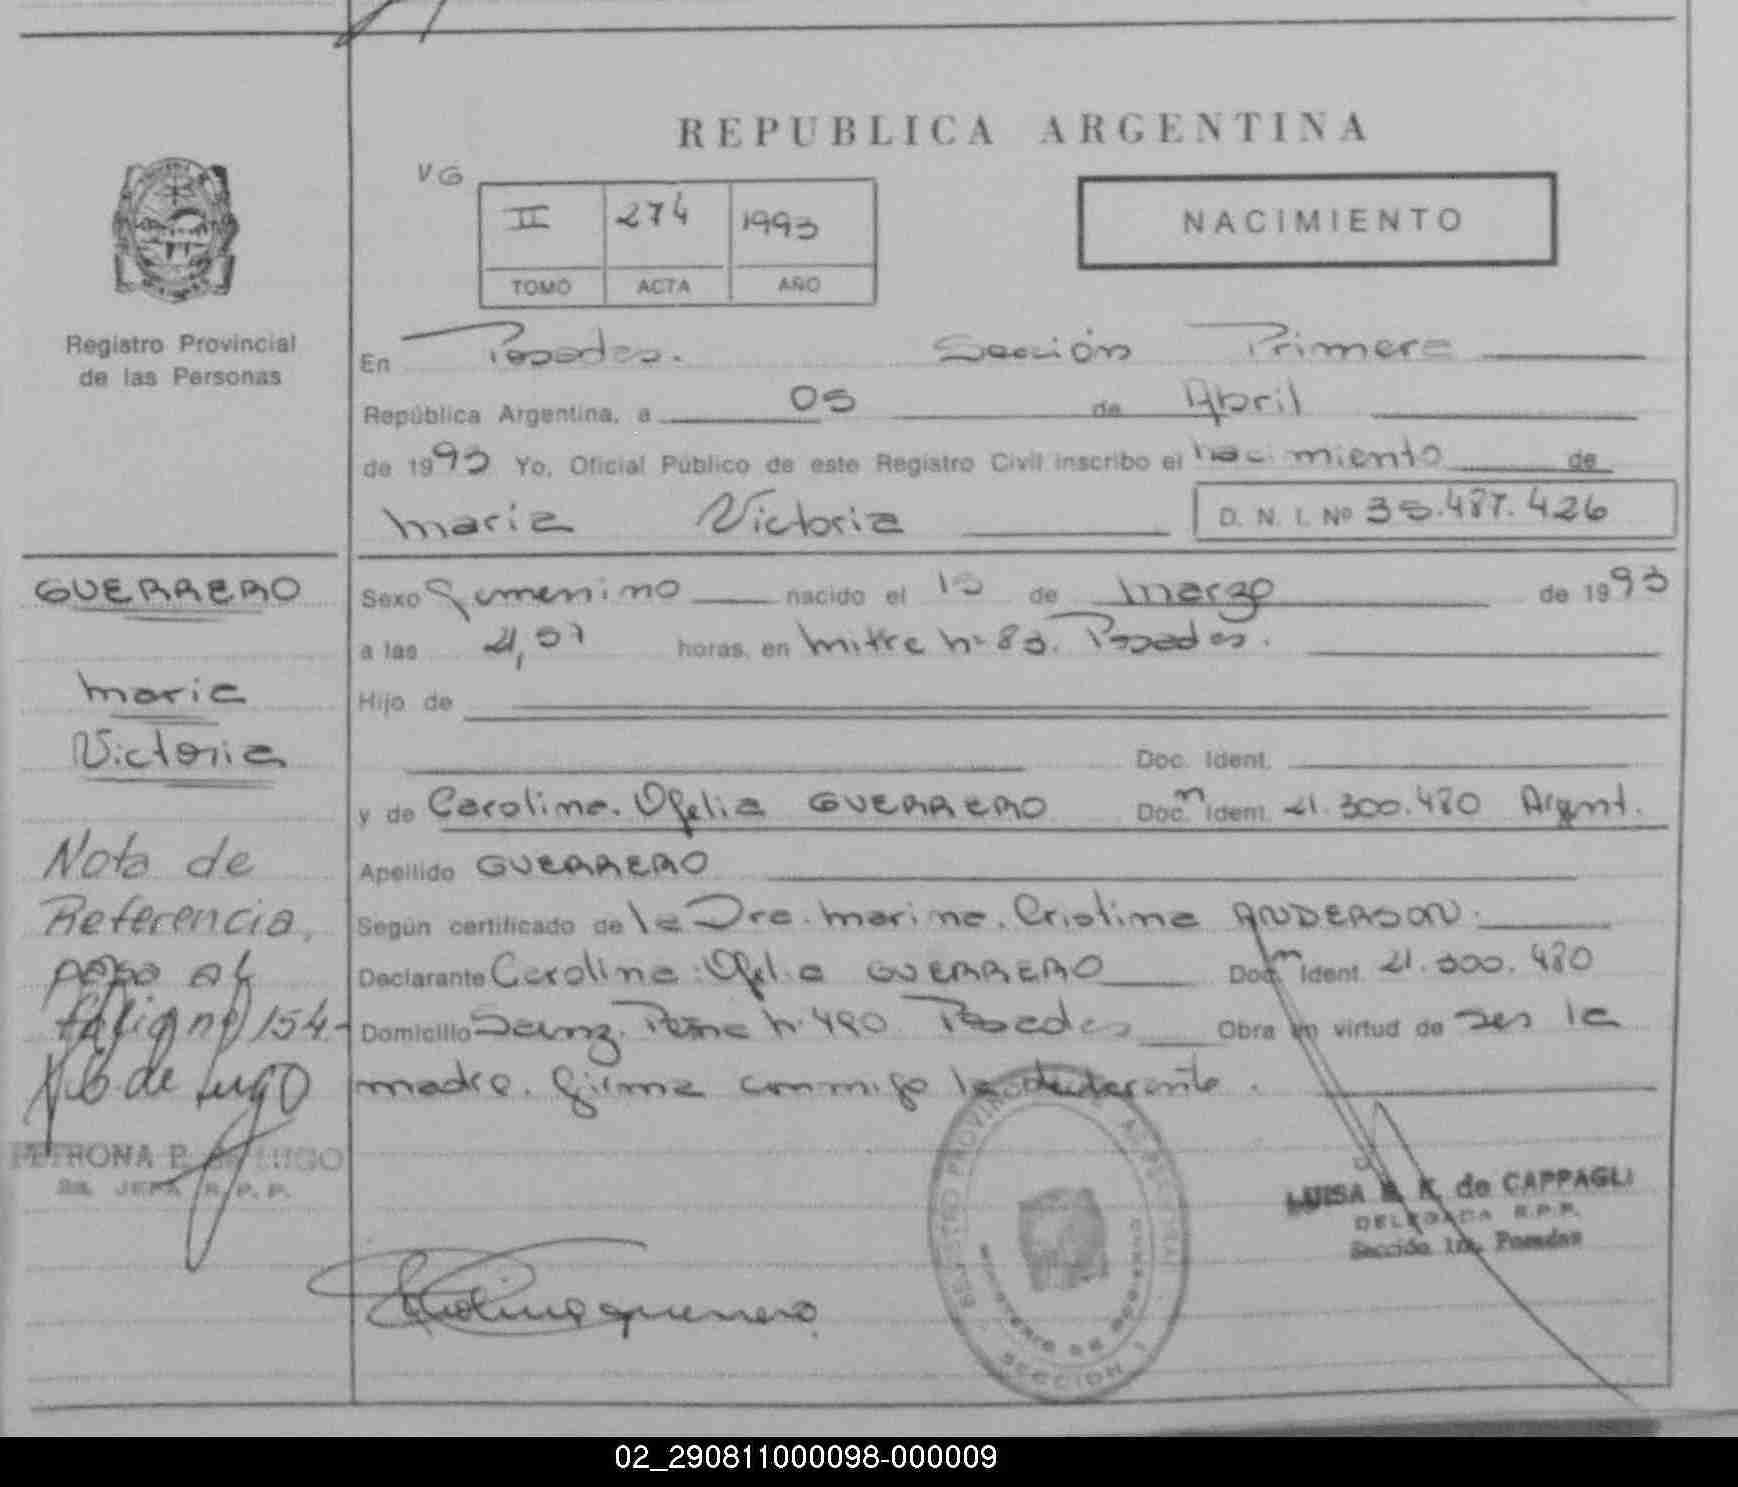 REPUBLICA ARGENTINA
VG
II 274 1993
TOMO ACTA AÑO
NACIMIENTO
Registro Provincial
de las Personas
En Posadas. Sección Primera
República Argentina, a 05 de Abril
de 1993 Yo, Oficial Público de este Registro Civil inscribo el nacimiento de
Maria Victoria D. N. I. Nº 35.487.426
GUERRERO
Maria
Victoria
Sexo femenino nacido el 15 de Marzo de 1993
a las 21,57 horas, en Mitre nº 83. Posadas.
Hijo de
Doc. Ident.
y de Carolina Ofelia GUERRERO Doc. Ident. 21.300.480 Argent.
Apellido GUERRERO
Según certificado de la Dra. Marina Cristina ANDERSON.
Declarante Carolina Ofelia GUERRERO Doc. Ident. 21.300.480
Domicilio Saenz Peña nº 490 Posadas Obra en virtud de ser la
madre. Firma conmigo la declarante.
Nota de
Referencia,
pasa al
folio nº 154-
de Lugo
PETRONA P. de LUGO
JEFA R. P. P.
Carolina guerrero
REGISTRO PROVINCIAL DE LAS PERSONAS
MINISTERIO DE GOBIERNO
SECCION 1
LUISA K. de CAPPAGLI
DELEGADA R.P.P.
Sección 1ra. Posadas
02_290811000098-000009